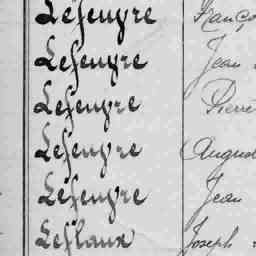 Lefeuvre Franço
Lefeuvre Jean
Lefeuvre Pierre
Lefeuvre August
Lefeuvre Jean
Leflaux Joseph